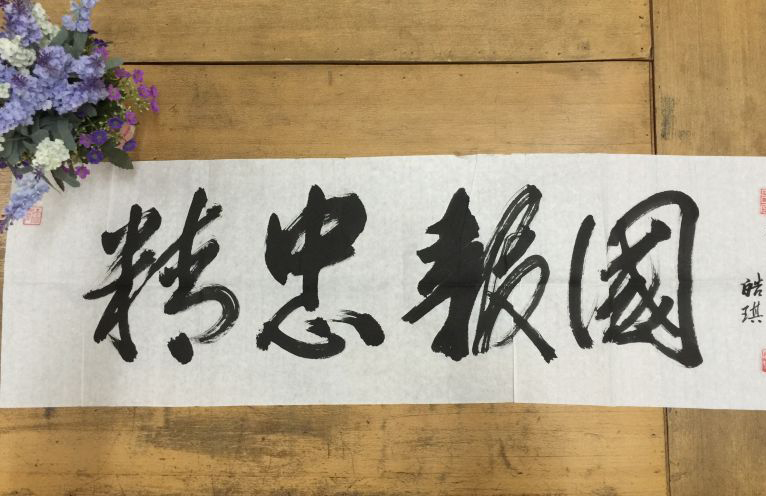 精忠報國
皓琪